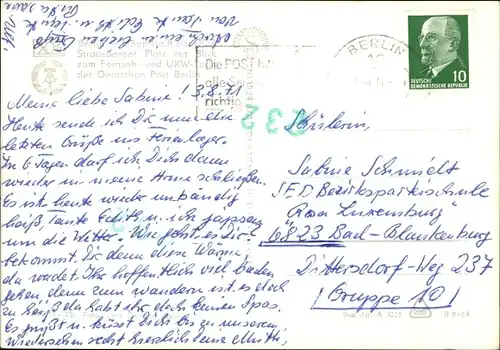 Noch ein lieben Gruß
von Tante Edith u.
Strausberger Platz mit Blick
zum Fernseh- und UKW-
der Deutschen Post Berlin
Die POST
alle
richtig
BERLIN
10
DEUTSCHE
DEMOKRATISCHE REPUBLIK
3.8.71
Meine liebe Sabine!
Heute sende ich Dir nun die
letzten Grüße ins Ferienlager.
In 6 Tagen darf ich Dich dann
wieder in meine Arme schließen.
Es ist heute wieder unbändig
heiß, Tante Edith u. ich japsen
um die Wette. Wie geht es Dir?
bekommt Dir denn diese Wärme,
da werdet Ihr hoffentlich viel baden
gehen, denn zum wandern ist es doch
zu heiß da habt Ihr doch keinen Spas.
Es grüßt u. küsst Dich bis zu unserem
wiedersehen recht herzlich Deine Mutti,
232
Schülerin,
Sabine Schmidt
SED Bezirksparteischule
"Rosa Luxemburg"
6823 Bad-Blankenburg
Dittersdorf-Weg 237
(Gruppe 10)